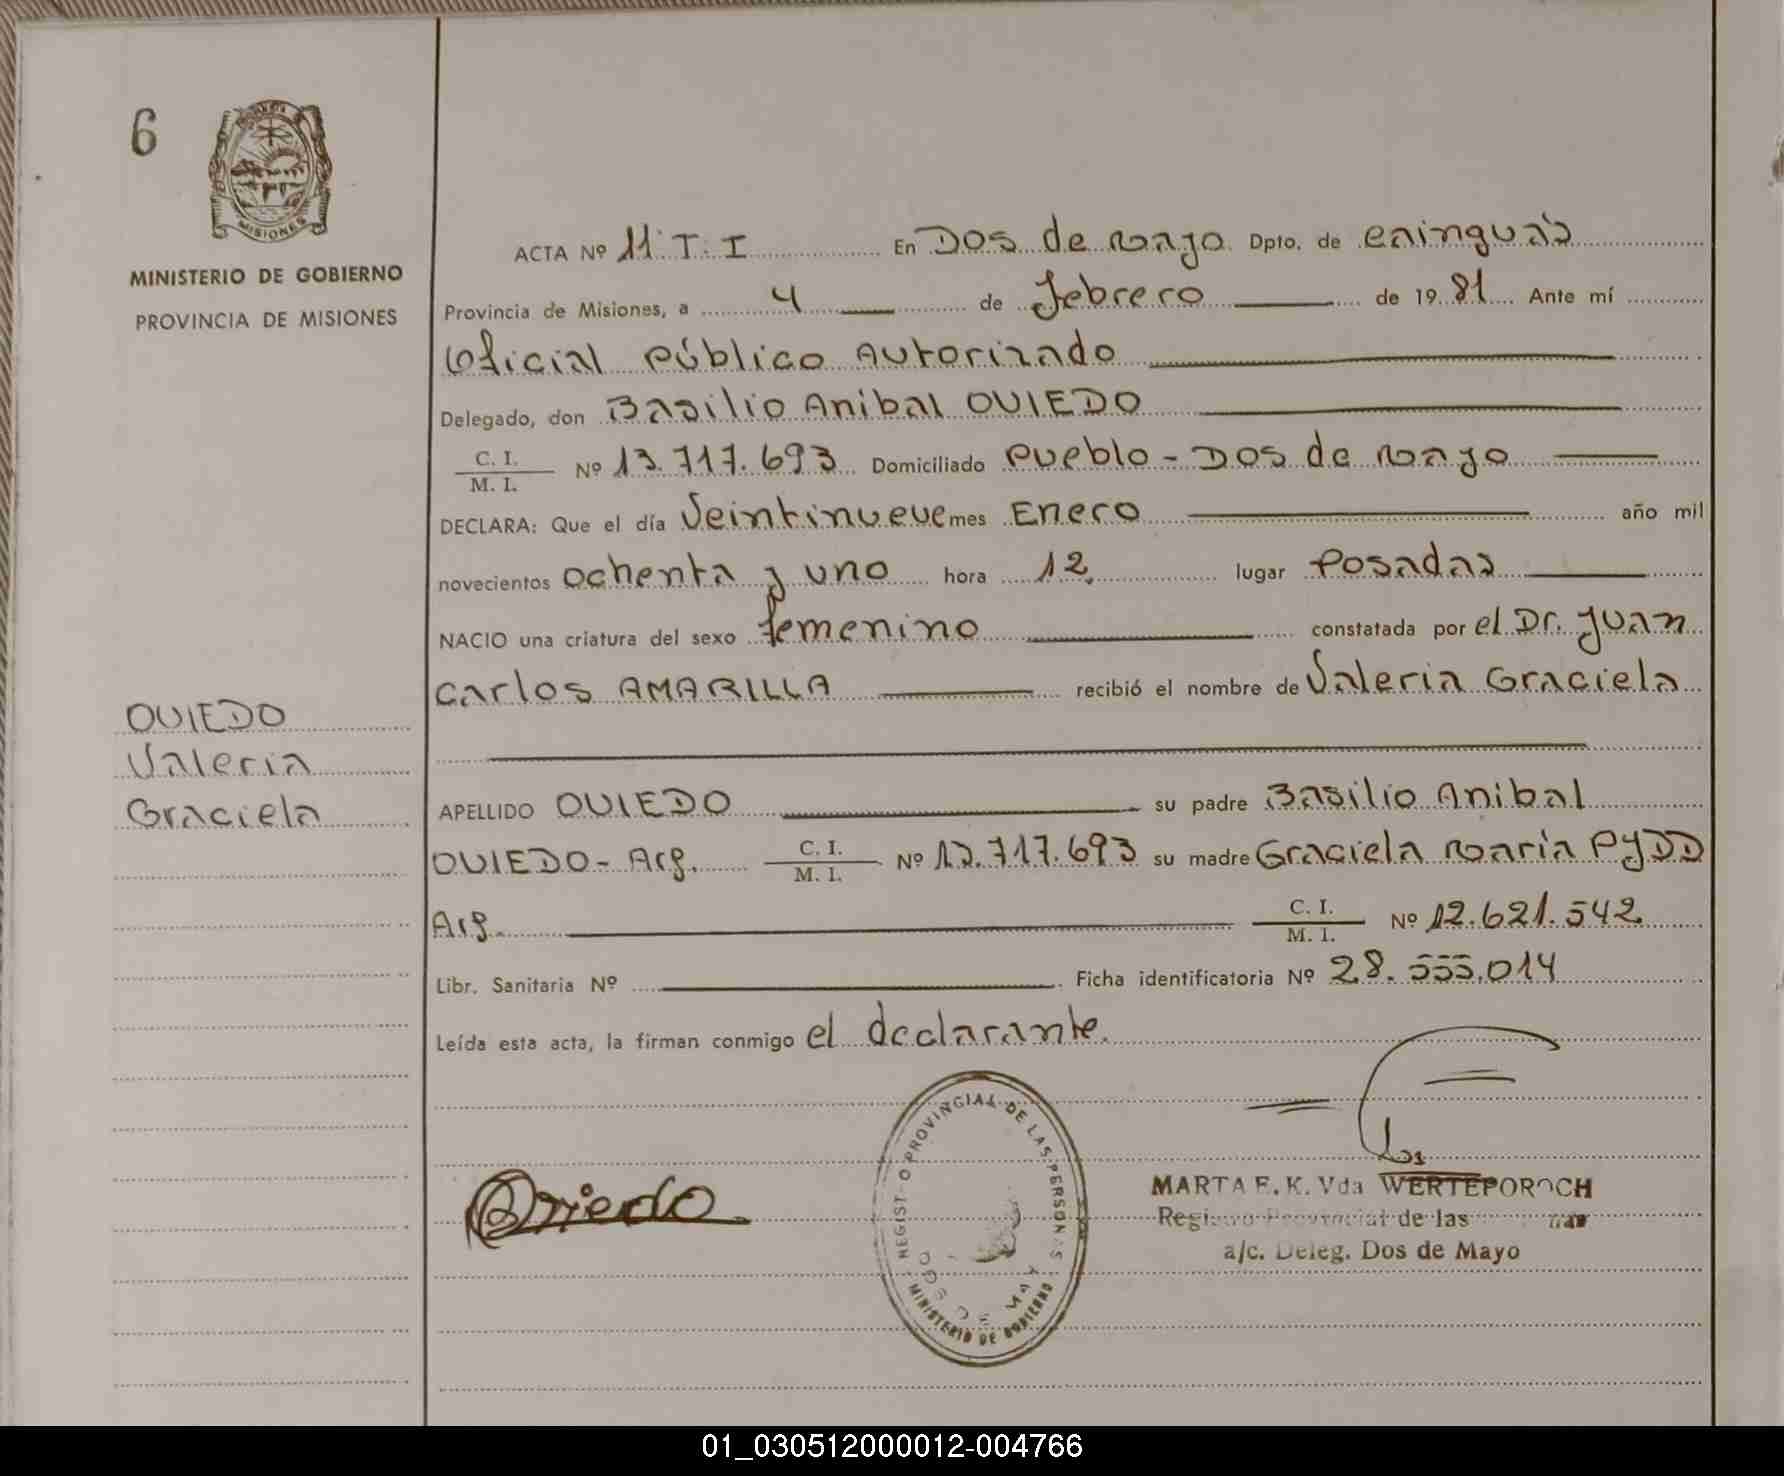 6
MISIONES
MINISTERIO DE GOBIERNO
PROVINCIA DE MISIONES
ACTA Nº 11 T: I En Dos de Mayo Dpto. de Cainguás
Provincia de Misiones, a 4 de Febrero de 1981 Ante mí
Oficial Público Autorizado
Delegado, don Basilio Anibal OVIEDO
C. I.
M. I. Nº 13.717.693 Domiciliado Pueblo - Dos de Mayo
DECLARA: Que el día Veintinueve mes Enero año mil
novecientos ochenta y uno hora 12, lugar Posadas
NACIO una criatura del sexo femenino constatada por el Dr. Juan
Carlos AMARILLA recibió el nombre de Valeria Graciela
OVIEDO
Valeria
Graciela
APELLIDO OVIEDO su padre Basilio Anibal
OVIEDO - Arg. C. I.
M. I. Nº 13.717.693 su madre Graciela Maria PYDD
Arg. C. I.
M. I. Nº 12.621.542
Libr. Sanitaria Nº Ficha identificatoria Nº 28.555.014
Leída esta acta, la firman conmigo el declarante.
Oviedo
REGISTRO PROVINCIAL DE LAS PERSONAS
DOS DE MAYO
MINISTERIO DE GOBIERNO
MARTA E. K. Vda WERTEPOROCH
Registro Provincial de las
a/c. Deleg. Dos de Mayo
01_030512000012-004766